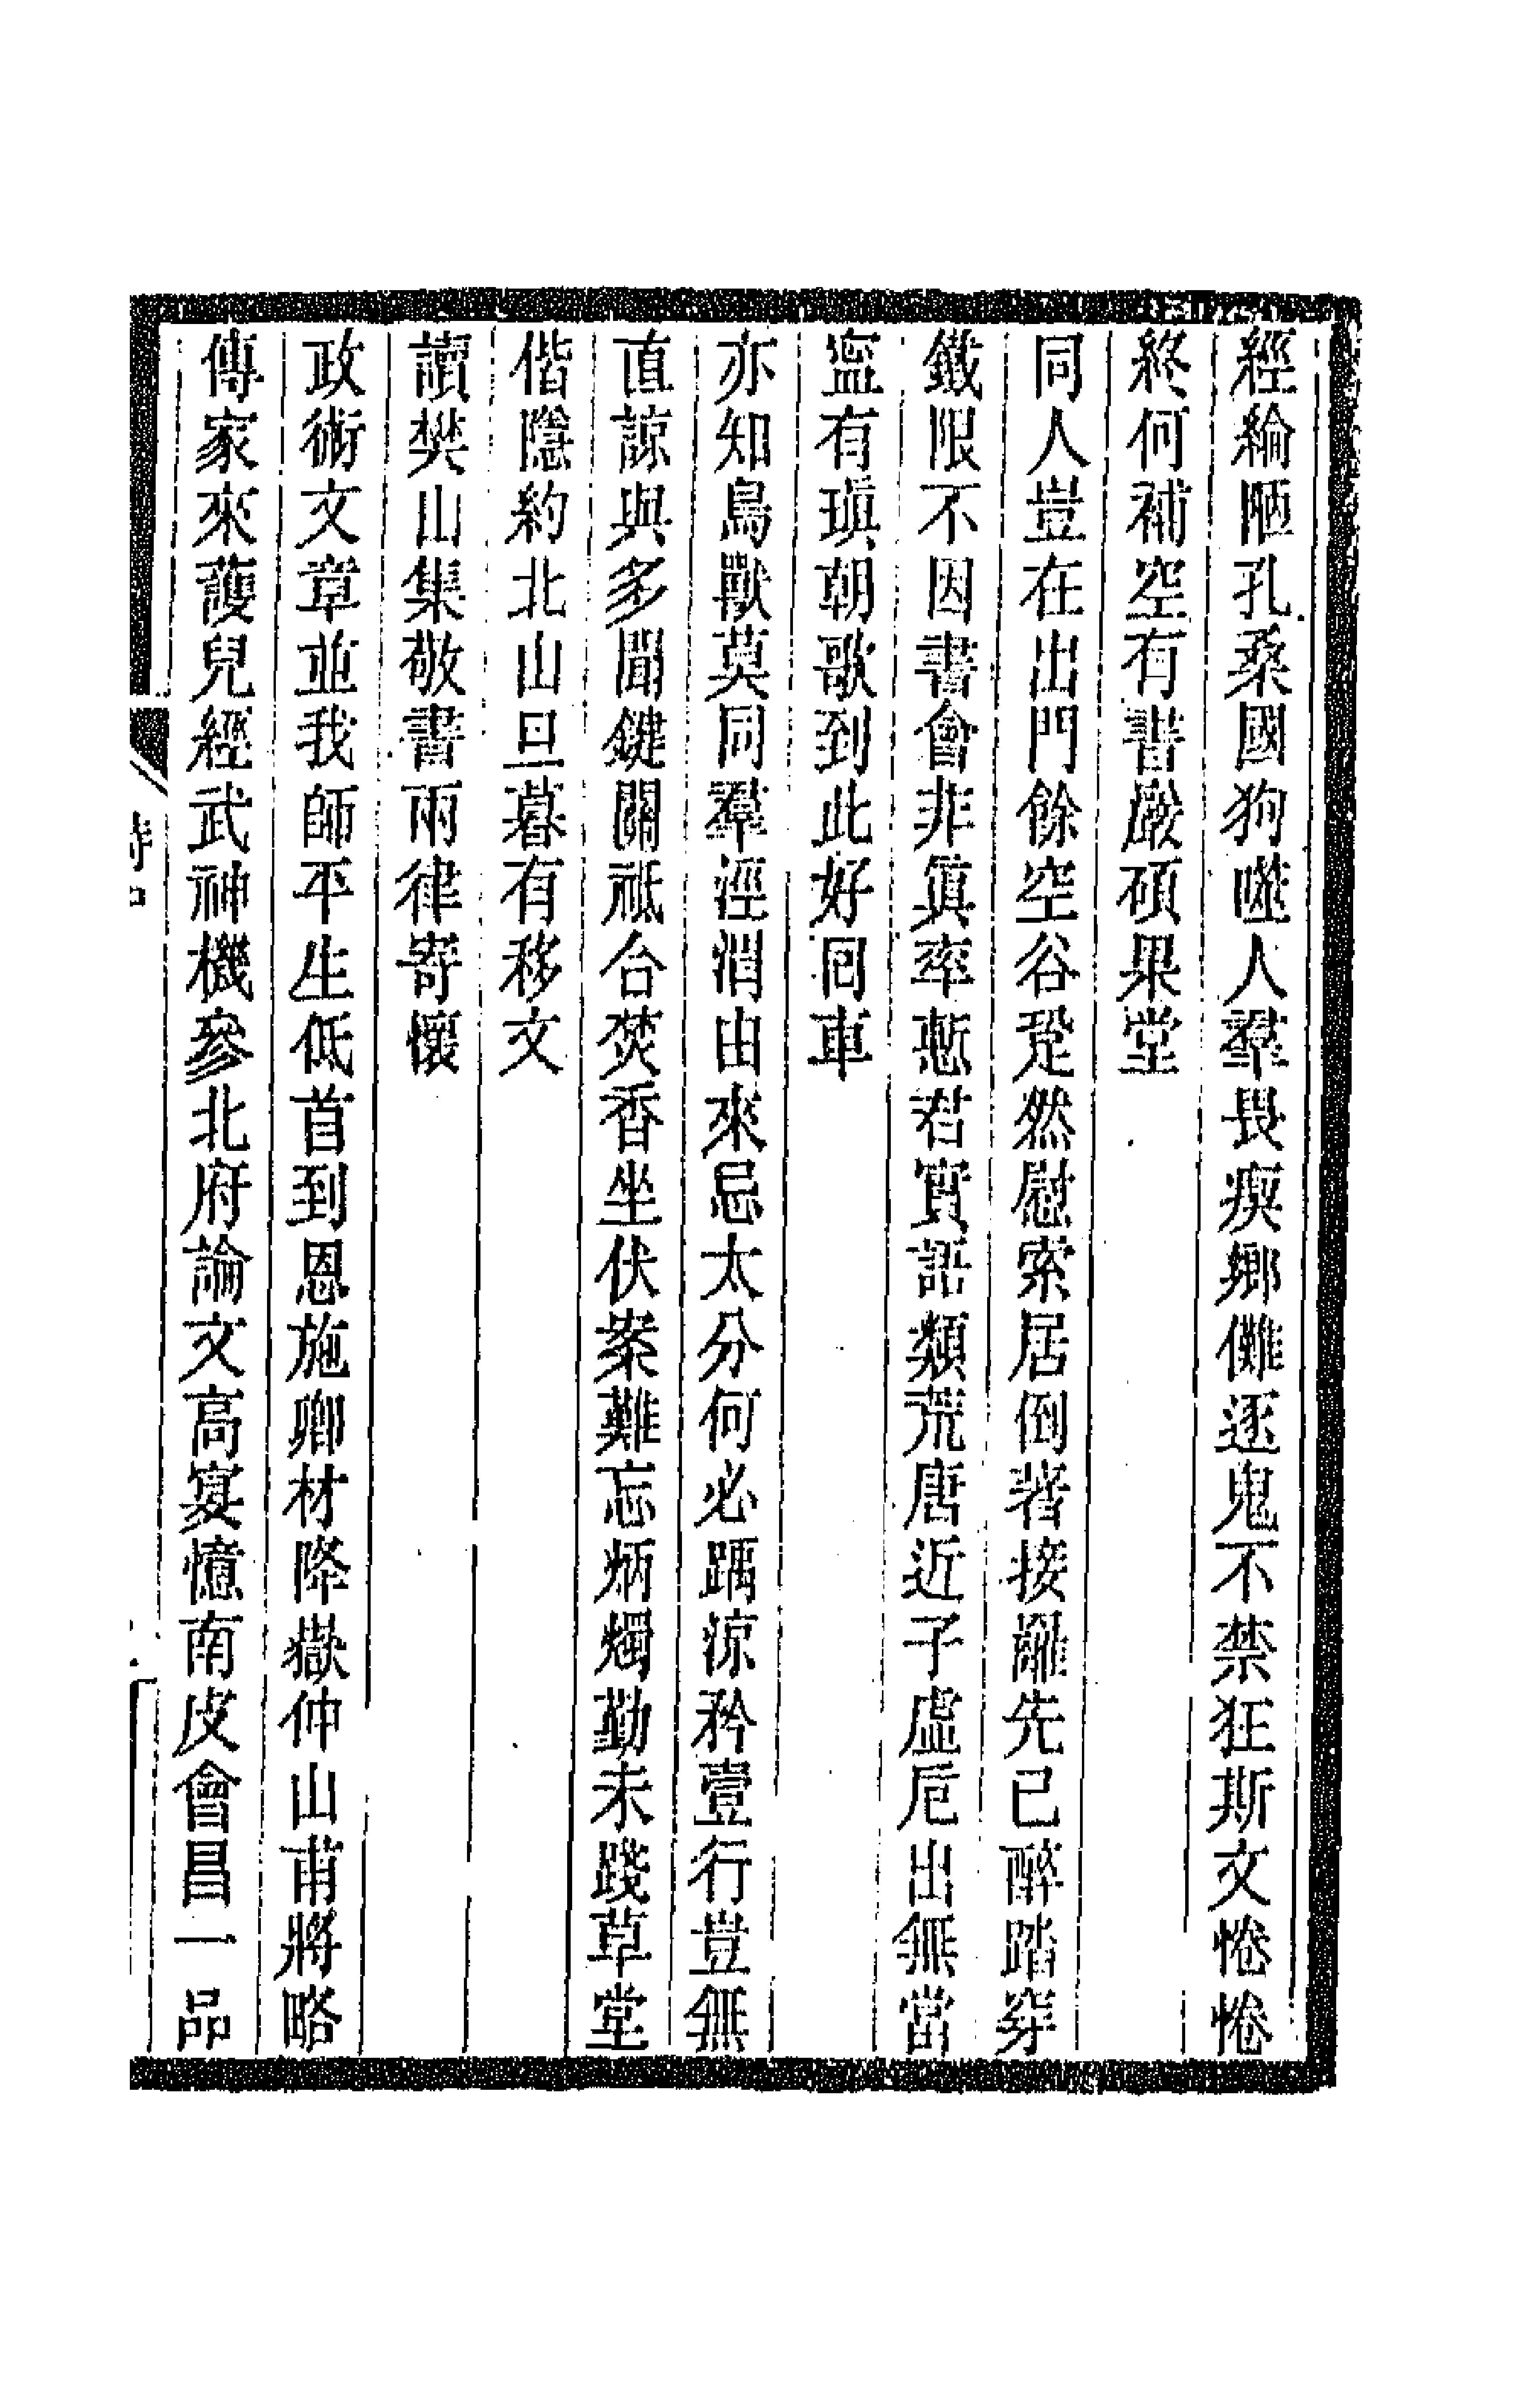 經綸陋孔桑國狗噬人羣畏瘈鄉儺逐鬼不禁狂斯文惓惓
終何補空有書巖碩果堂
同人豈在出門餘空谷跫然慰索居倒著接䍦先已醉踏穿
鐵限不因書會非眞率慙君實語類荒唐近子虛卮出無當
寍有瑱朝歌到此好回車
亦知鳥獸莫同羣涇渭由來忌太分何必踽涼矜壹行豈無
直諒與多聞鍵關祗合焚香坐伏案難忘炳燭勤未踐草堂
偕隱約北山旦暮有移文
讀樊山集敬書兩律寄懷
政術文章並我師平生低首到恩施卿材降嶽仲山甫將略
傳家來護兒經武神機參北府論文高宴憶南皮會昌一品